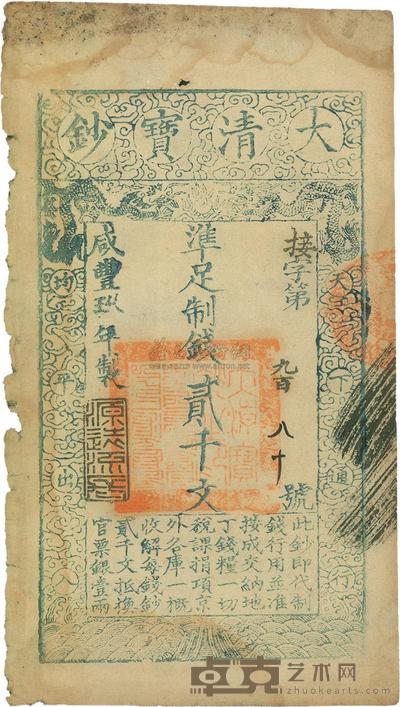 大清寶鈔
天下通行
均平出入
接字第九百八十號
準足制錢貳千文
咸豐玖年製
源遠流長
此鈔即代制
錢行用並准
按成交納地
丁錢糧一切
稅課捐項京
外各庫一概
收解每錢鈔
貳千文抵換
官票銀壹兩
卓克艺术网
zhuokearts.com